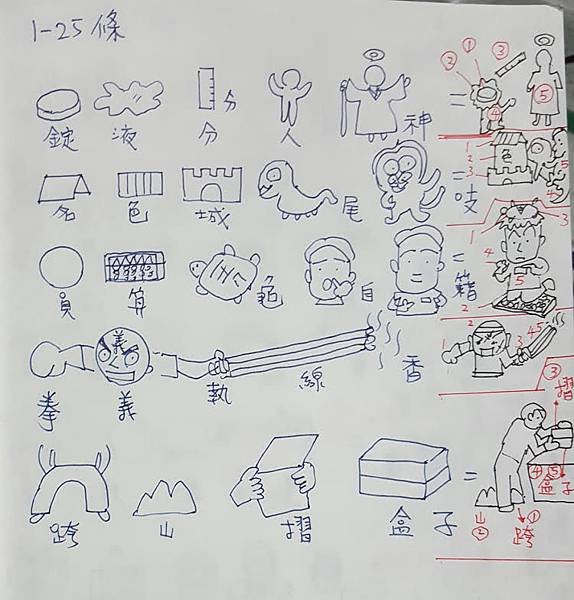 1-25條
分
錠 液 分 人 神 =
② ① ③ ④ ⑤
色
名 色 城 尾 吱 =
1 2 3 4 5
員 算 龜 自 籍 =
1 2 3 4 5
義
拳 義 執 線 香
1 2 3 4 5
③ 摺
④ ⑤
盒子
跨 山 摺 盒子 =
山 ② 跨 ①